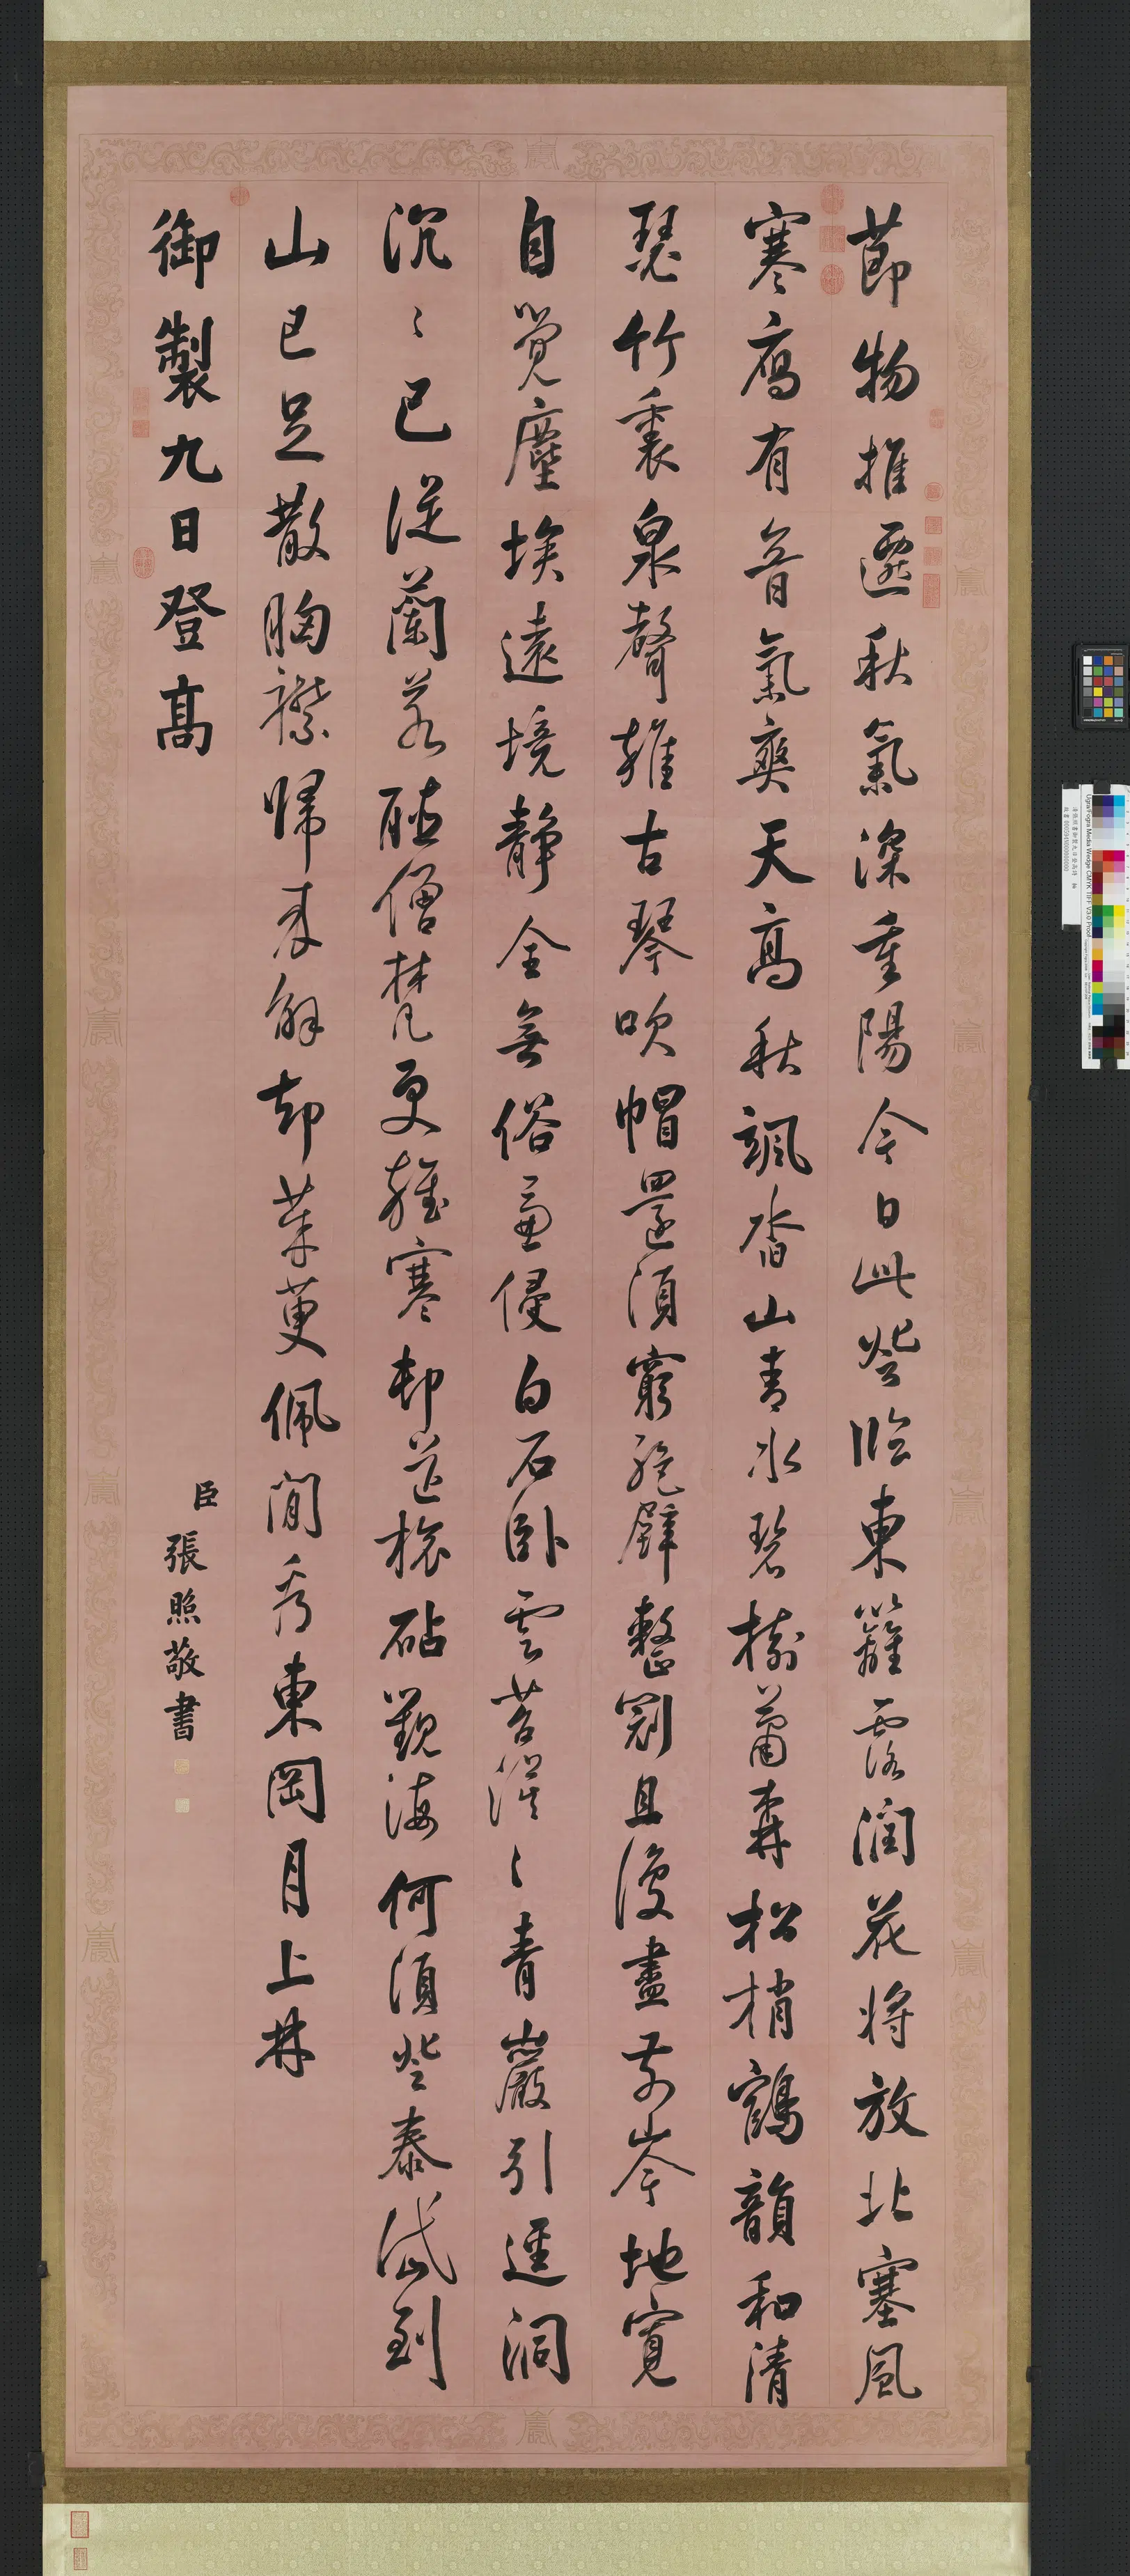 節物推遷秋氣深重陽今日此登臨東籬露潤花將放北塞風
寒鴈有音氣爽天高秋颯沓山青水碧樹蕭森松梢鶴韻和清
瑟竹裏泉聲雜古琴吹帽還須窮絕壁整冠且復盡前岑地寬
自覺塵埃遠境靜全無俗慮侵白石臥雲苔漠〻青巖引逕洞
沉〻已從蘭若聽僧梵更雜寒邨砧觀海何須登泰岱到
山已足散胸襟歸來解却茱萸佩閒看東岡月上林
御製九日登高
臣張照敬書